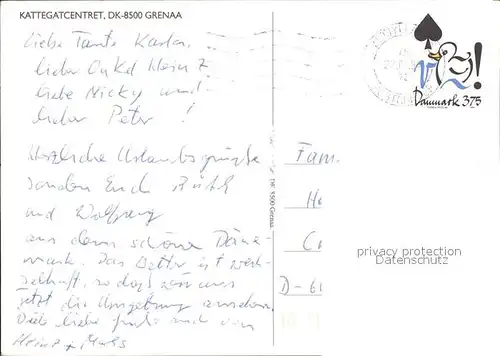 KATTEGATCENTRET, DK-8500 GRENAA
Liebe Tante Karla,
lieber Onkel Heinz
liebe Nicky und
lieber Peter !
Herzliche Urlaubsgrüße
senden Euch Ruth
und Wolfgang
aus dem schönen Däne-
mark. Das Wetter ist wech-
selhaft, so daß wir uns
jetzt die Umgebung ansehen.
Viele liebe Grüße auch von
Heinz + 
DK 8500 Grenaa
Danmark 375
Fam.
H
C
D-61
privacy protection
Datenschutz